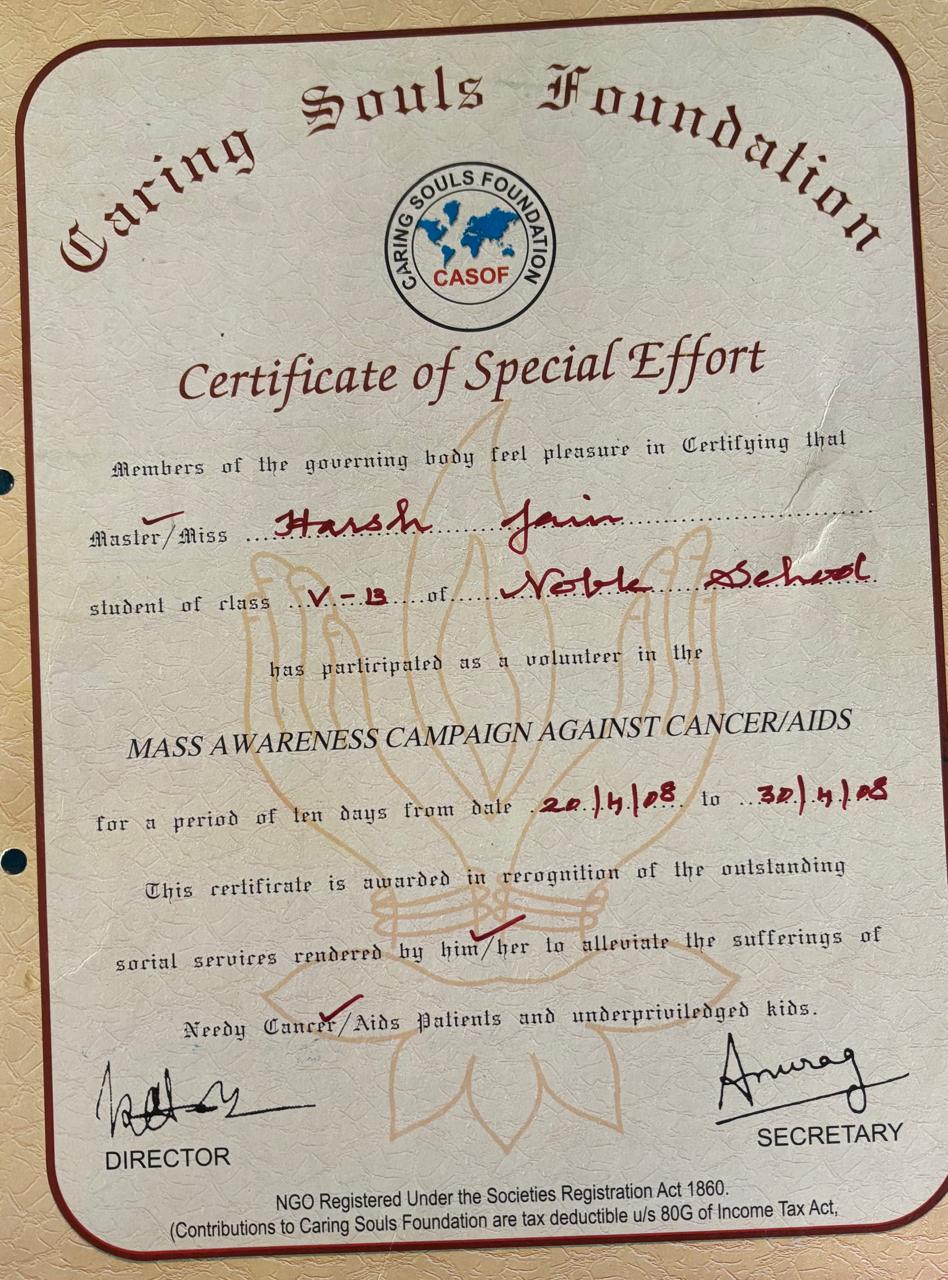 Caring Souls Foundation
CARING SOULS FOUNDATION
CASOF
Certificate of Special Effort
Members of the governing body feel pleasure in Certifying that
Master/Miss Harsh Jain
student of class V-B of Noble School
has participated as a volunteer in the
MASS AWARENESS CAMPAIGN AGAINST CANCER/AIDS
for a period of ten days from date 20/4/08 to 30/4/08
This certificate is awarded in recognition of the outstanding
social services rendered by him/her to alleviate the sufferings of
Needy Cancer/Aids Patients and underpriviledged kids.
Anurag
DIRECTOR
SECRETARY
NGO Registered Under the Societies Registration Act 1860.
(Contributions to Caring Souls Foundation are tax deductible u/s 80G of Income Tax Act,